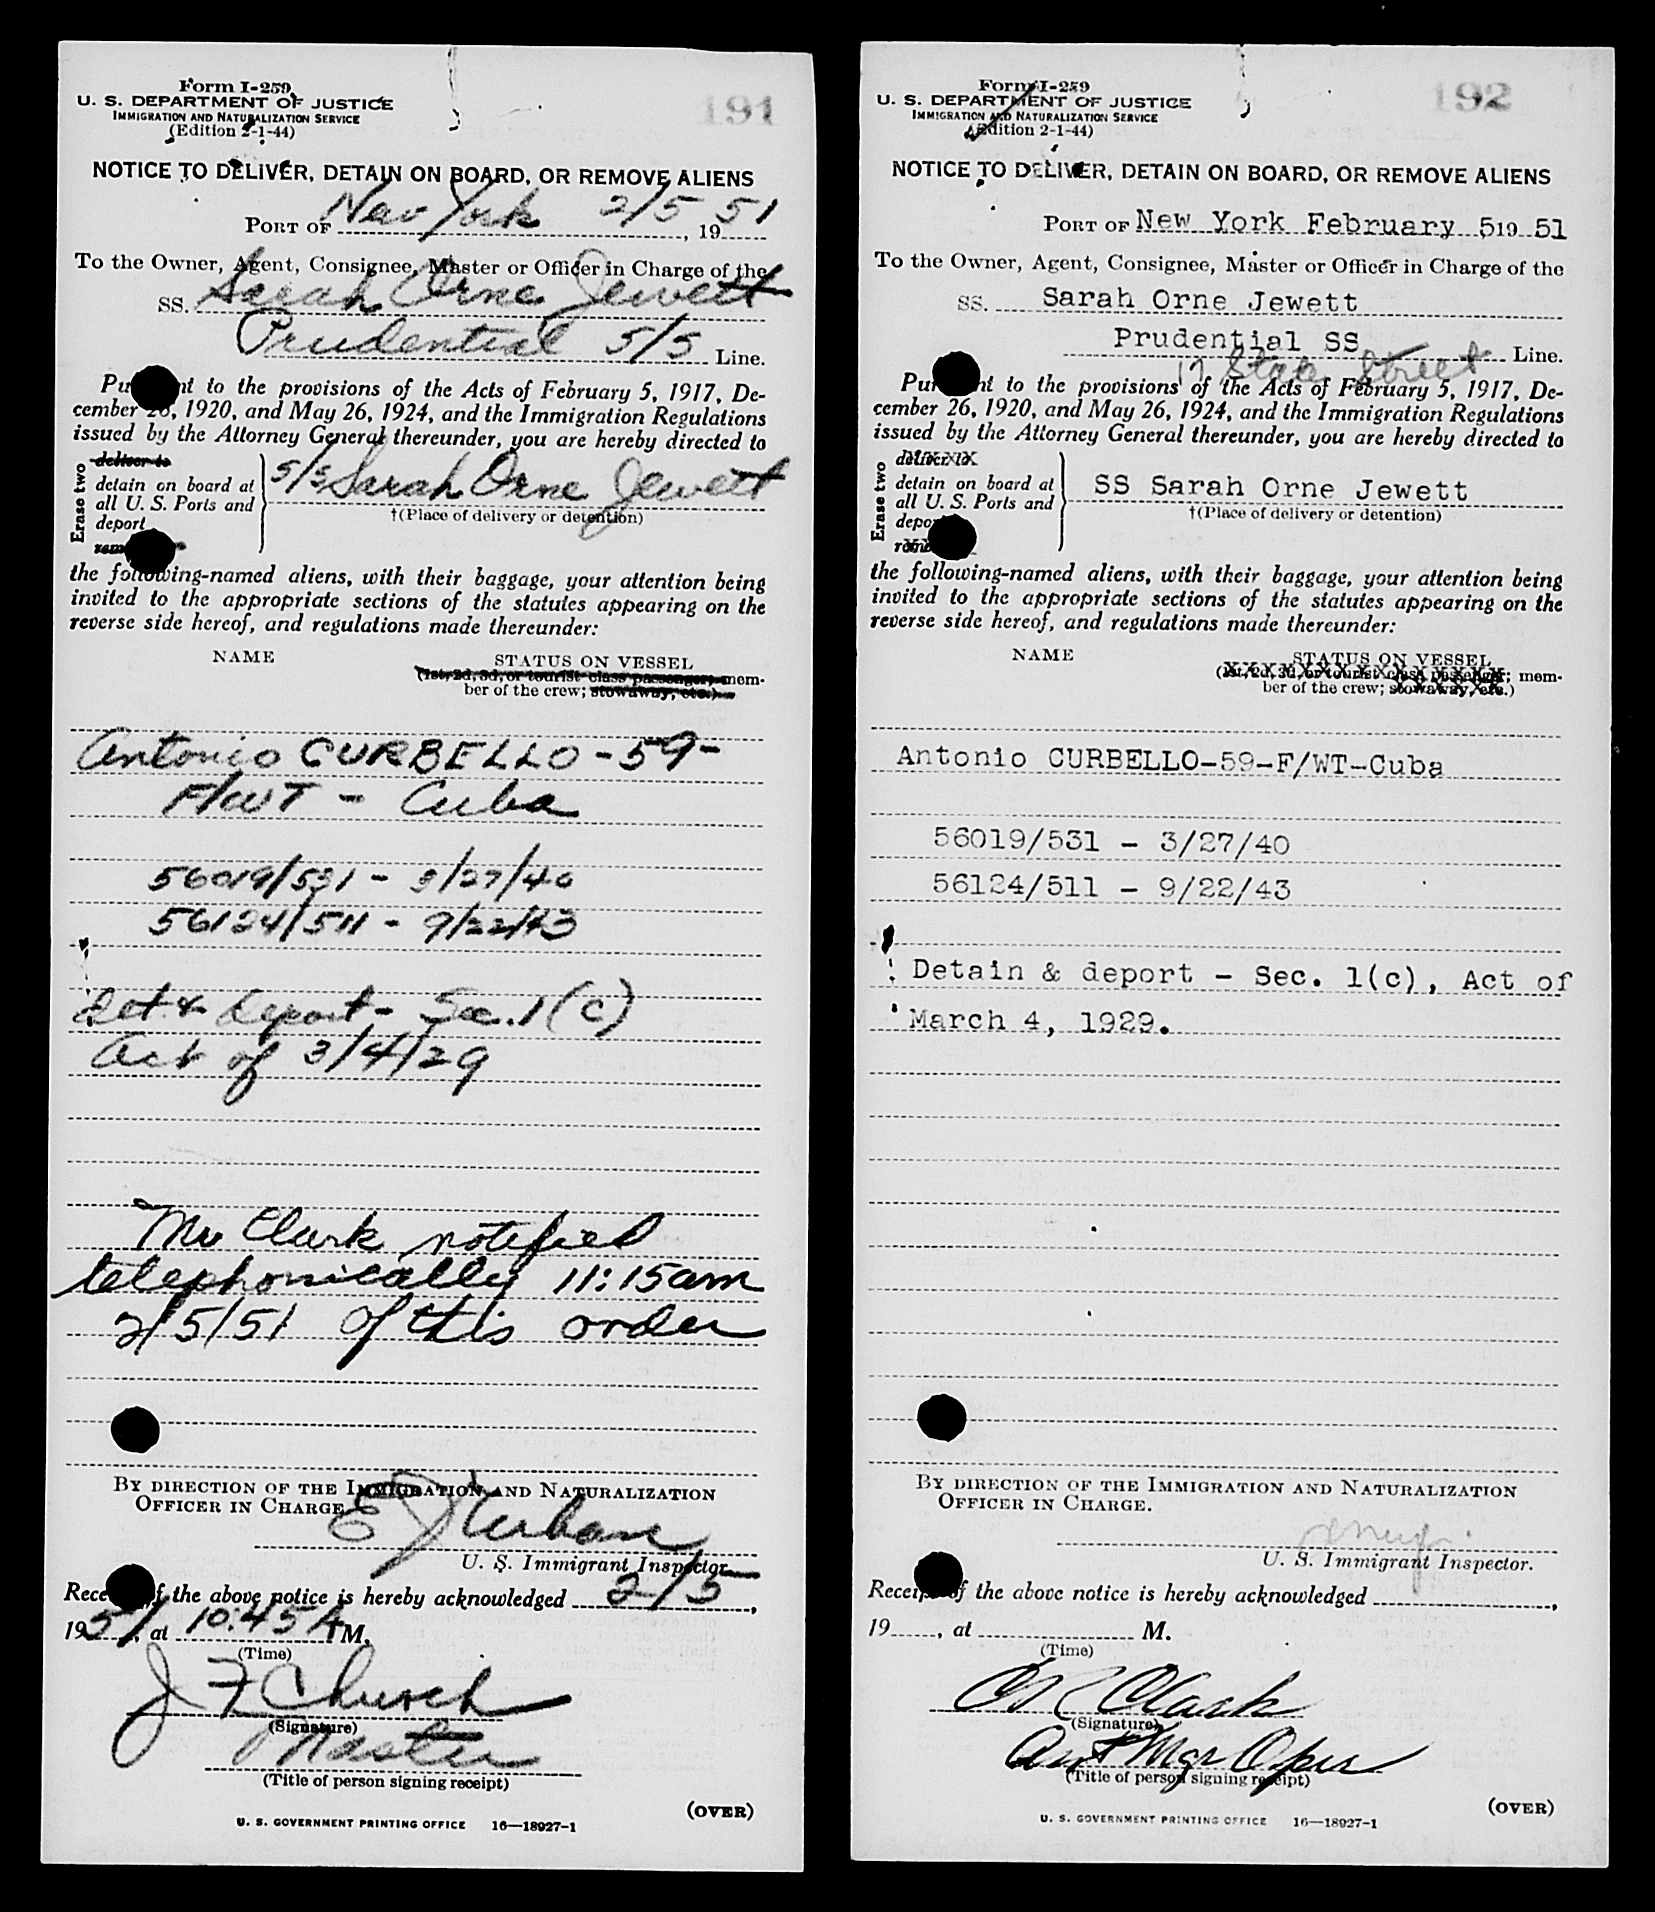 Form I-259
U. S. DEPARTMENT OF JUSTICE
IMMIGRATION AND NATURALIZATION SERVICE
(Edition 2-1-44)
191
NOTICE TO DELIVER, DETAIN ON BOARD, OR REMOVE ALIENS
PORT OF New York 2/5, 1951
To the Owner, Agent, Consignee, Master or Officer in Charge of the
SS. Sarah Orne Jewett
Prudential S/S Line.
Pu nt to the provisions of the Acts of February 5, 1917, De-
cember 26, 1920, and May 26, 1924, and the Immigration Regulations
issued by the Attorney General thereunder, you are hereby directed to
Erase two
deliver to
detain on board at
all U. S. Ports and
deport
rem
S/S Sarah Orne Jewett
†(Place of delivery or detention)
the following-named aliens, with their baggage, your attention being
invited to the appropriate sections of the statutes appearing on the
reverse side hereof, and regulations made thereunder:
NAME
STATUS ON VESSEL
(1st, 2d, 3d, or tourist class passenger; mem-
ber of the crew; stowaway, etc.)
Antonio CURBELLO - 59 -
F/WT - Cuba
56019/531 - 3/27/40
56124/511 - 9/22/43
Det & Deport - Sec. 1(c)
Act of 3/4/29
Mr Clark notified
telephonically 11:15am
2/5/51 of this order
BY DIRECTION OF THE IMMIGRATION AND NATURALIZATION
OFFICER IN CHARGE.
E J Urban
U. S. Immigrant Inspector.
Rece f the above notice is hereby acknowledged 2/5,
1951, at 10:45 A M.
(Time)
J F Church
(Signature)
Master
(Title of person signing receipt)
(OVER)
U. S. GOVERNMENT PRINTING OFFICE 16—18927-1
Form I-259
U. S. DEPARTMENT OF JUSTICE
IMMIGRATION AND NATURALIZATION SERVICE
(Edition 2-1-44)
192
NOTICE TO DELIVER, DETAIN ON BOARD, OR REMOVE ALIENS
PORT OF New York February 5 19 51
To the Owner, Agent, Consignee, Master or Officer in Charge of the
SS. Sarah Orne Jewett
Prudential SS Line.
17 State Street
Pur nt to the provisions of the Acts of February 5, 1917, De-
cember 26, 1920, and May 26, 1924, and the Immigration Regulations
issued by the Attorney General thereunder, you are hereby directed to
Erase two
deliver to
detain on board at
all U. S. Ports and
depo
remo
SS Sarah Orne Jewett
†(Place of delivery or detention)
the following-named aliens, with their baggage, your attention being
invited to the appropriate sections of the statutes appearing on the
reverse side hereof, and regulations made thereunder:
NAME
STATUS ON VESSEL
(1st, 2d, 3d, or tourist class passenger; mem-
ber of the crew; stowaway, etc.)
Antonio CURBELLO-59-F/WT-Cuba
56019/531 - 3/27/40
56124/511 - 9/22/43
Detain & deport - Sec. 1(c), Act of
March 4, 1929.
BY DIRECTION OF THE IMMIGRATION AND NATURALIZATION
OFFICER IN CHARGE.
U. S. Immigrant Inspector.
Receip of the above notice is hereby acknowledged ,
19 , at M.
(Time)
Clark
(Signature)
Asst Mgr Oper
(Title of person signing receipt)
(OVER)
U. S. GOVERNMENT PRINTING OFFICE 16—18927-1